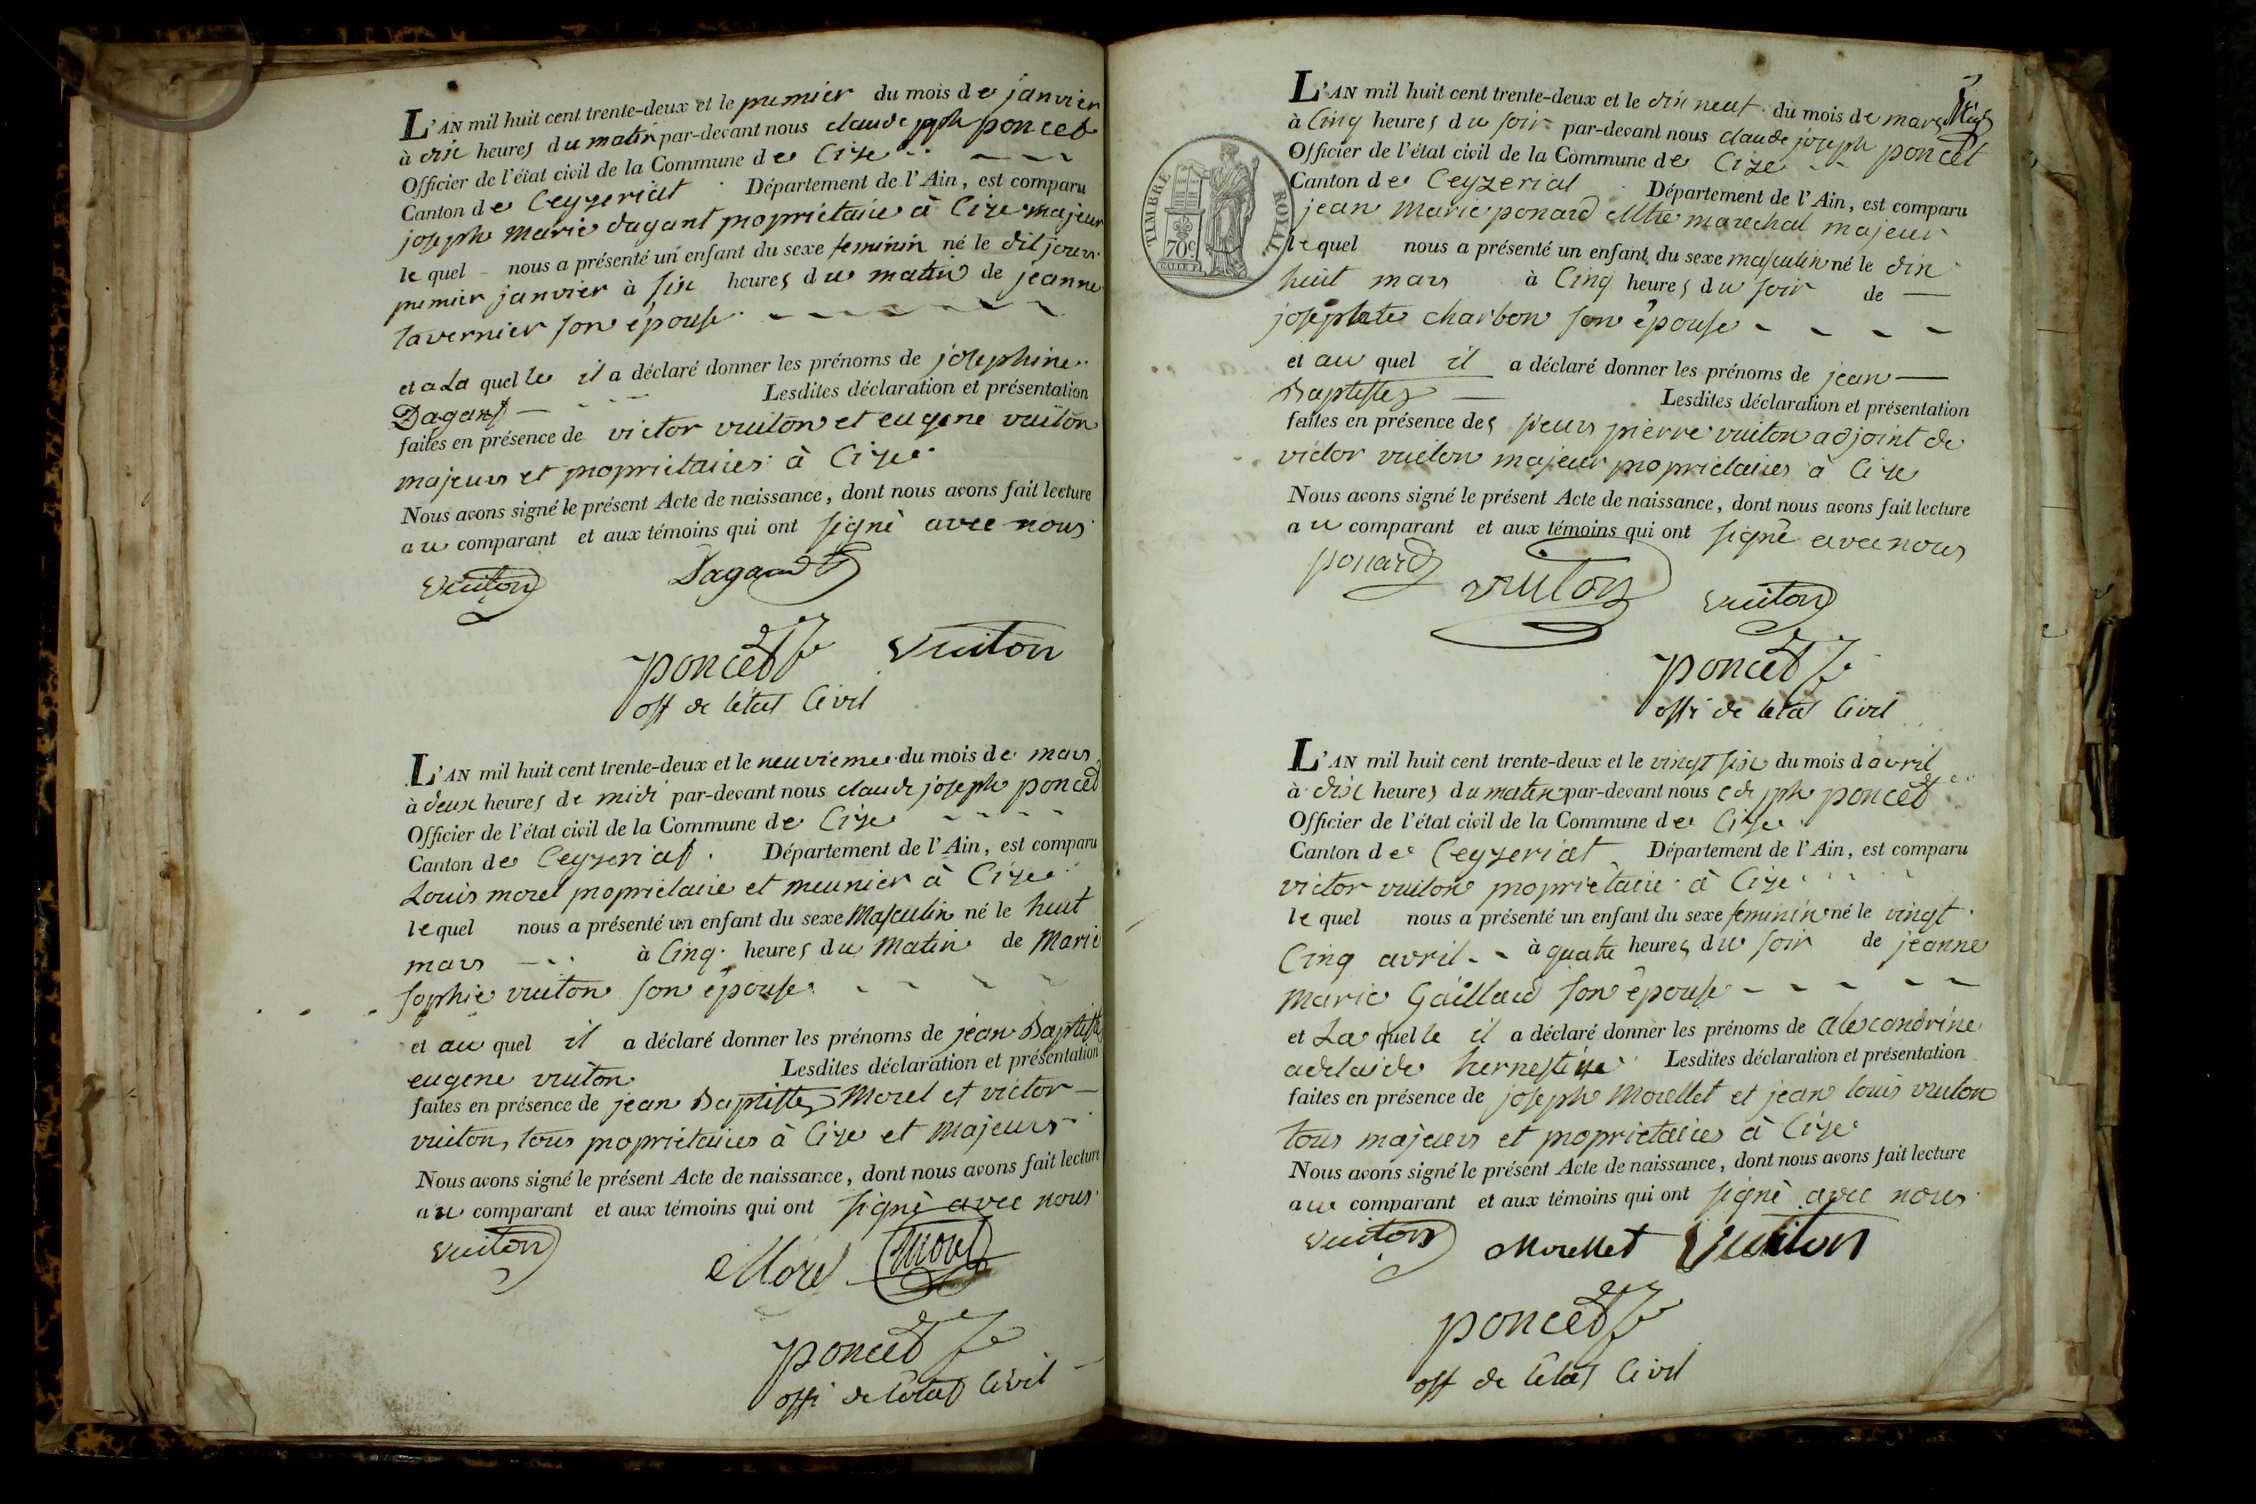 L'AN mil huit cent trente-deux et le premier du mois de janvier
à dix heures du matin par-devant nous claude jph poncet
Officier de l'état civil de la Commune de Cize
Canton de Ceyzeriat Département de l'Ain, est comparu
joseph Marie dagant propriétaire à Cize majeur
le quel nous a présenté un enfant du sexe feminin né le dit jour
premier janvier à six heures du matin de jeanne
tavernier son épouse
et a La quelle il a déclaré donner les prénoms de josephine
Dagant Lesdites déclaration et présentation
faites en présence de victor vuiton et eugene vuiton
majeurs et propriétaires à Cize
Nous avons signé le présent Acte de naissance, dont nous avons fait lecture
au comparant et aux témoins qui ont signé avec nous
vuiton Dagand
poncet vuiton
off de l'état Civil
L'AN mil huit cent trente-deux et le neuvieme du mois de mars
à deux heures de midi par-devant nous claude joseph poncet
Officier de l'état civil de la Commune de Cize
Canton de Ceyzeriat Département de l'Ain, est comparu
Louis morel propriétaire et meunier à Cize
le quel nous a présenté un enfant du sexe Masculin né le huit
mars à Cinq heures du Matin de Marie
sophie vuiton son épouse
et au quel il a déclaré donner les prénoms de jean Baptiste
eugene vuiton Lesdites déclaration et présentation
faites en présence de jean Baptiste Morel et victor
vuiton, tous propriétaires à Cize et Majeurs
Nous avons signé le présent Acte de naissance, dont nous avons fait lecture
au comparant et aux témoins qui ont signé avec nous
vuiton Morel Morel
poncet
offi de l'état Civil
3
L'AN mil huit cent trente-deux et le dix neuf du mois de mars
à Cinq heures du soir par-devant nous claude joseph poncet
Officier de l'état civil de la Commune de Cize
Canton de Ceyzeriat Département de l'Ain, est comparu
TIMBRE ROYAL
70 c
jean Marie ponard Mtre marechal majeur
le quel nous a présenté un enfant du sexe masculin né le dix
huit mars à Cinq heures du soir de
josephte charbon son épouse
et au quel il a déclaré donner les prénoms de jean
Baptiste Lesdites déclaration et présentation
faites en présence des sieurs pierre vuiton adjoint de
victor vuiton majeur propriétaires à Cize
Nous avons signé le présent Acte de naissance, dont nous avons fait lecture
au comparant et aux témoins qui ont signé avec nous
ponard vuiton vuiton
poncet
offi de létat Civil
L'AN mil huit cent trente-deux et le vingt six du mois d avril
à dix heures du matin par-devant nous cde jph poncet
Officier de l'état civil de la Commune de Cize
Canton de Ceyzeriat Département de l'Ain, est comparu
victor vuiton propriétaire à Cize
le quel nous a présenté un enfant du sexe feminin né le vingt
Cinq avril à quatre heures du soir de jeanne
Marie Gaillard son épouse
et La quelle il a déclaré donner les prénoms de alexandrine
adelaide hernestine Lesdites déclaration et présentation
faites en présence de joseph Morellet et jean louis vuiton
tous majeurs et propriétaires à Cize
Nous avons signé le présent Acte de naissance, dont nous avons fait lecture
au comparant et aux témoins qui ont signé avec nous
vuiton Morellet vuiton
poncet
off de létat Civil